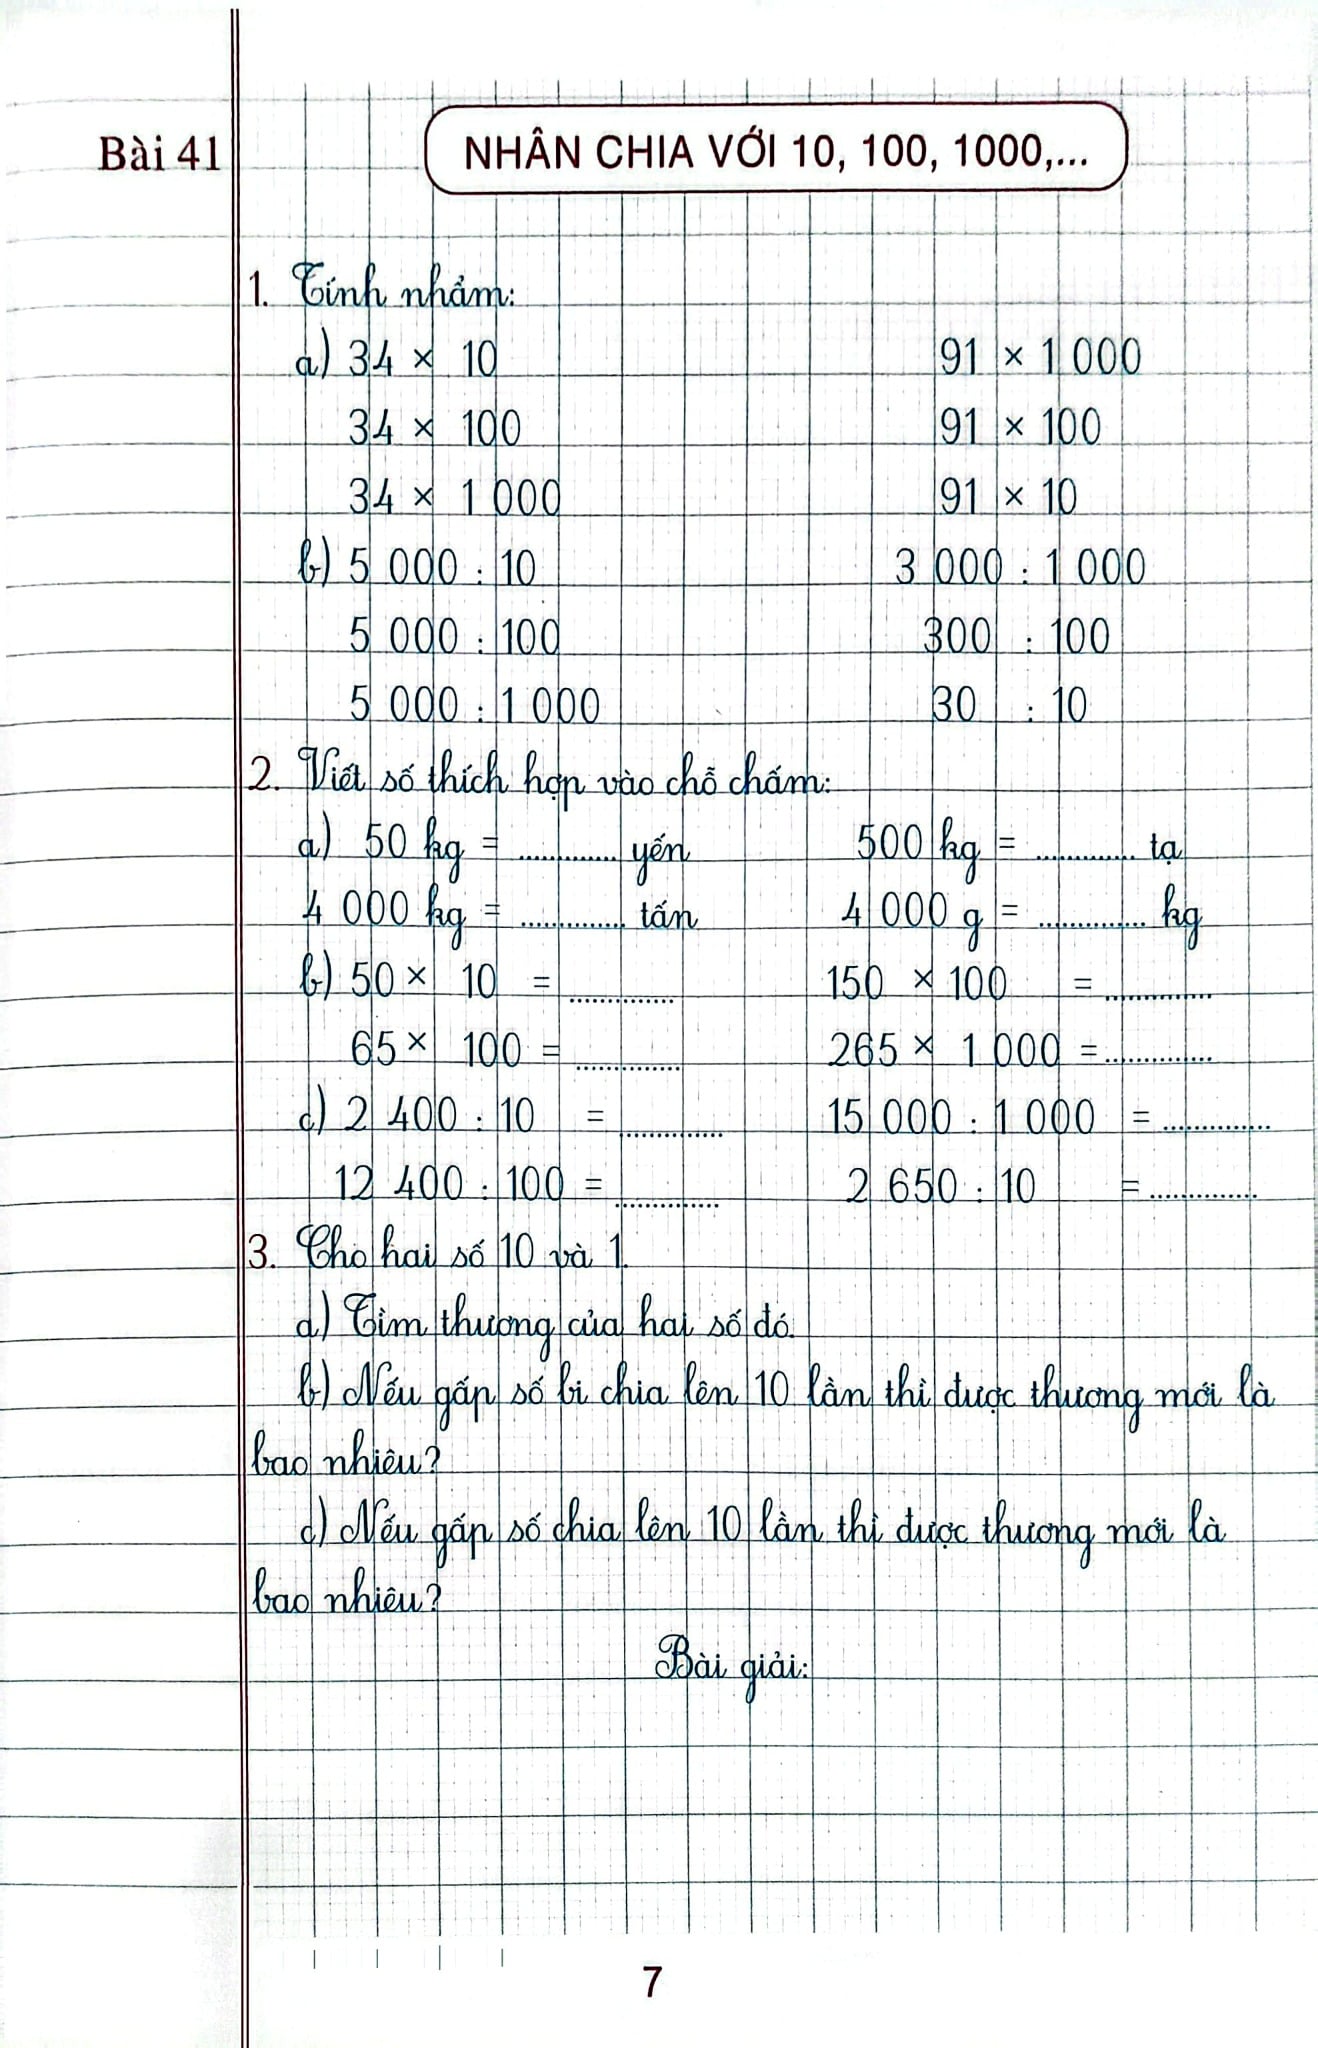 Bài 41
NHÂN CHIA VỚI 10, 100, 1000,...
1. Tính nhẩm:
a) 34 × 10 91 × 1 000
34 × 100 91 × 100
34 × 1 000 91 × 10
b) 5 000 : 10 3 000 : 1 000
5 000 : 100 300 : 100
5 000 : 1 000 30 : 10
2. Viết số thích hợp vào chỗ chấm:
a) 50 kg = ............. yến 500 kg = ............. tạ
4 000 kg = ............. tấn 4 000 g = ............. kg
b) 50 × 10 = ............. 150 × 100 = .............
65 × 100 = ............. 265 × 1 000 = .............
c) 2 400 : 10 = ............. 15 000 : 1 000 = .............
12 400 : 100 = ............. 2 650 : 10 = .............
3. Cho hai số 10 và 1.
a) Tìm thương của hai số đó.
b) Nếu gấp số bị chia lên 10 lần thì được thương mới là
bao nhiêu?
c) Nếu gấp số chia lên 10 lần thì được thương mới là
bao nhiêu?
Bài giải:
7